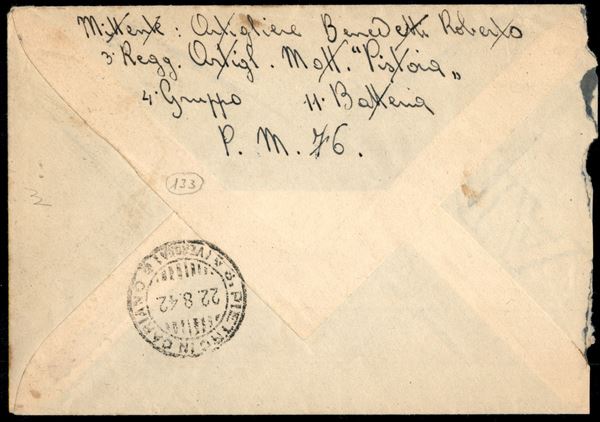 Mittente : Artigliere Benedetti Roberto
3° Regg. Artigl. Mot. "Pistoia„
4° Gruppo 11° Batteria
P. M. 76.
133
S. PIETRO IN CARIANO
(VERONA)
22.8.42